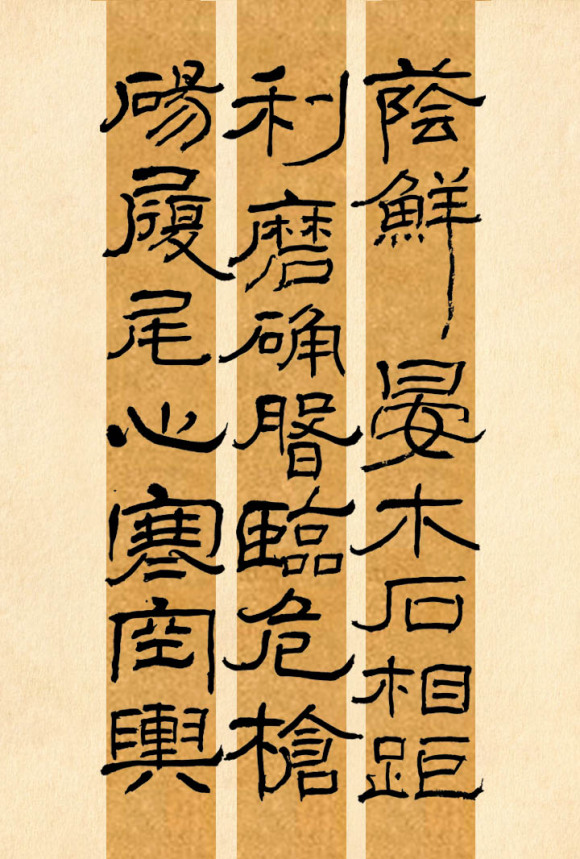 蔭鮮晏木石相距
利磨确磐臨危槍
碭履尾心寒空輿